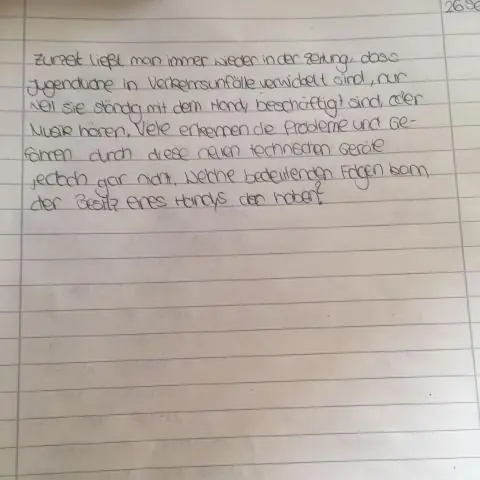 26.9
Zurzeit ließt man immer wieder in der Zeitung, dass
Jugendliche in Verkehrsunfälle verwickelt sind, nur
weil sie ständig mit dem Handy beschäftigt sind, oder
Musik hören. Viele erkennen die Probleme und Ge-
fahren durch diese neuen technischen Geräte
jedoch gar nicht. Welche bedeutenden Folgen kann
der Besitz eines Handys den haben?